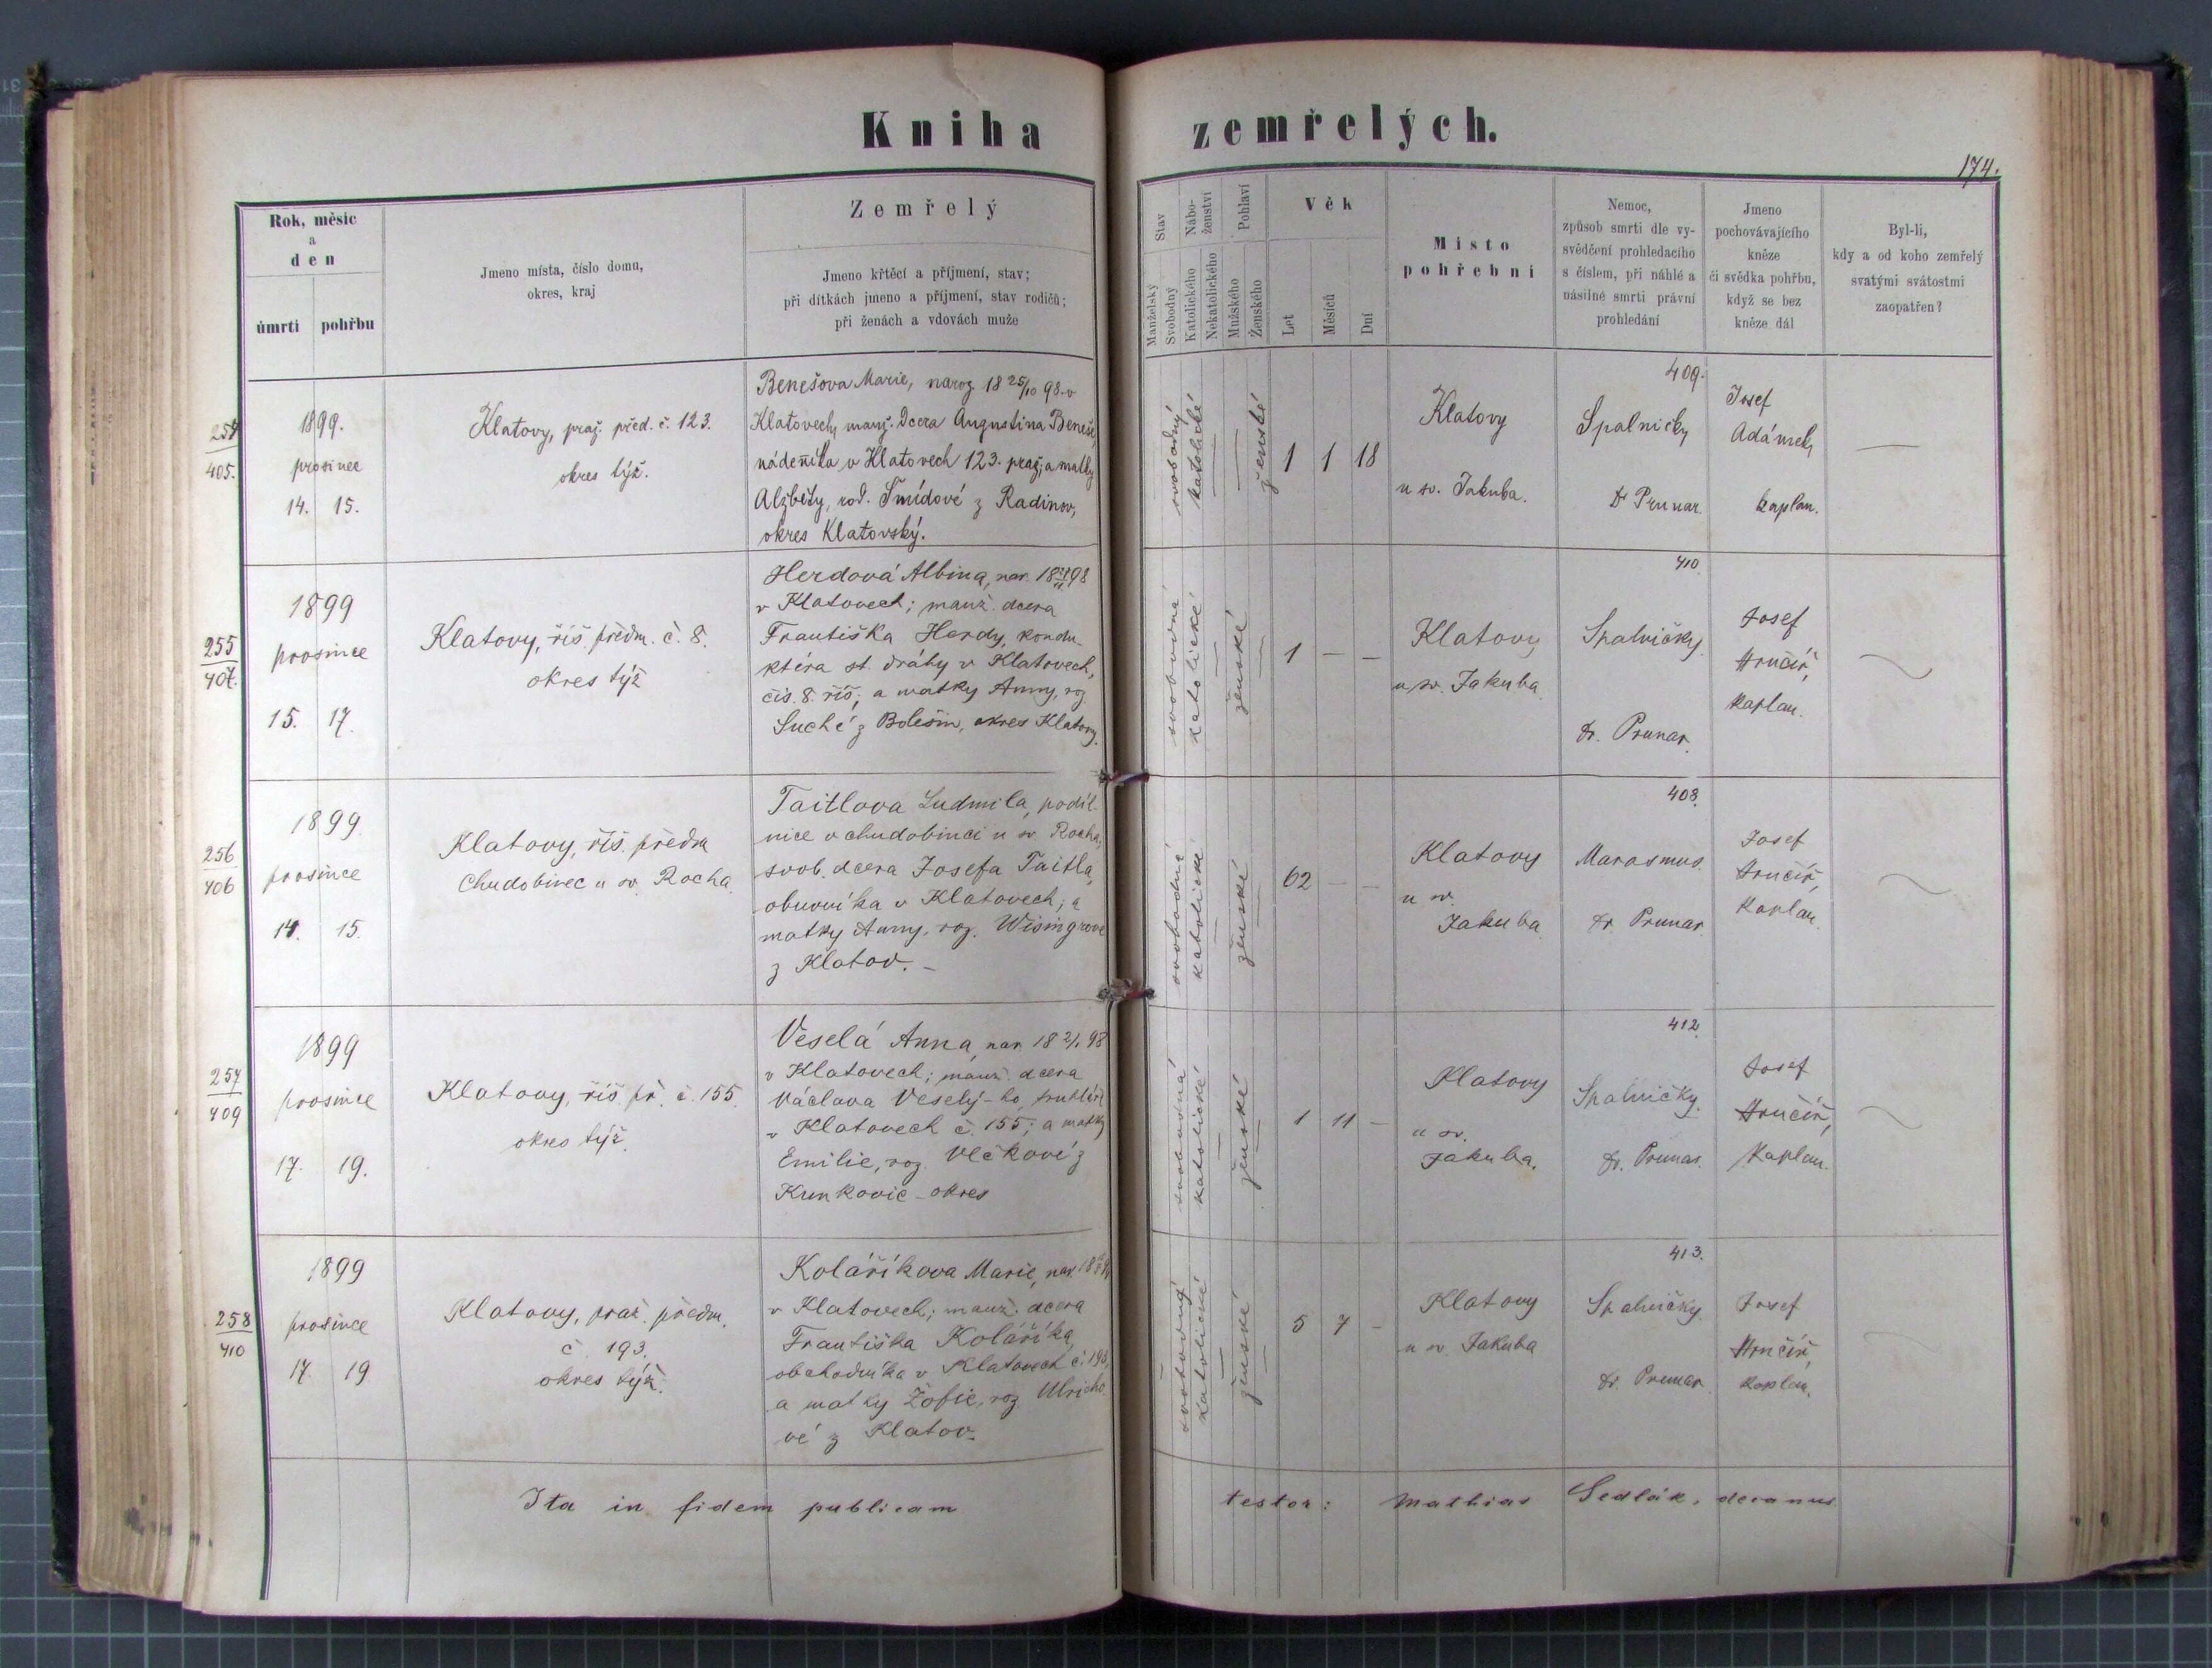 Kniha zemřelých.
174.
Rok, měsíc
a
den
úmrtí pohřbu
Jmeno místa, číslo domu,
okres, kraj
Zemřelý
Jmeno křtěcí a příjmení, stav;
při dítkách jmeno a příjmení, stav rodičů;
při ženách a vdovách muže
Stav
Manželský
Svobodný
Nábo-
ženství
Katolického
Nekatolického
Pohlaví
Mužského
Ženského
Věk
Let
Měsíců
Dní
Místo
pohřební
Nemoc,
způsob smrti dle vy-
svědčení prohledacího
s číslem, při náhlé a
násilné smrti právní
prohledání
Jmeno
pochovávajícího
kněze
či svědka pohřbu,
když se bez
kněze dál
Byl-li,
kdy a od koho zemřelý
svatými svátostmi
zaopatřen?
254
405.
1899.
prosinec
14. 15.
Klatovy, praž. před. č. 123.
okres týž.
Benešova Marie, naroz. 18 25/10 98. v
Klatovech, manž. dcera Augustina Beneše,
nádeníka v Klatovech 123. praž. a matky
Alžběty, rod. Šmídové z Radinov,
okres Klatovský.
svobodný
katolické
ženské
1 1 18
Klatovy
u sv. Jakuba.
409.
Spalničky
Dr Prunar.
Josef
Adámek,
kaplan.
—
255
407.
1899
prosince
15. 17.
Klatovy, říš. předm. č. 8.
okres týž
Herdová Albina, nar. 18 98
v Klatovech; manž. dcera
Františka Herdy, kondu-
ktéra st. dráhy v Klatovech,
čís. 8. říš; a matky Anny, roz.
Suché z Bolešin, okres Klatovy.
svobodná
katolické
ženské
1 — —
Klatovy
u sv. Jakuba
410.
Spalničky.
dr. Prunar.
Josef
Hrnčíř,
kaplan.
256
406
1899
prosince
14. 15.
Klatovy, říš. předm
Chudobinec u sv. Rocha.
Taitlova Ludmila, podíl-
nice v chudobinci u sv Rocha,
svob. dcera Josefa Taitla,
obuvníka v Klatovech; a
matky Anny, roz. Wisingrové
z Klatov. –
svobodné
katolické
ženské
62 — —
Klatovy
u sv.
Jakuba
408.
Marasmus.
dr. Prunar
Josef
Hrnčíř,
Kaplan.
257
409
1899
prosince
17. 19.
Klatovy, říš. př. č. 155.
okres týž.
Veselá Anna, nar. 18 2/1 98
v Klatovech; manž. dcera
Václava Veselý-ho, truhláře
v Klatovech č. 155; a matky
Emilie, roz. Vlčkové z
Kunkovic – okres
svobodná
katolické
ženské
1 11 —
Klatovy
u sv.
Jakuba.
412.
Spalničky.
dr. Prunar.
Josef
Hrnčíř,
Kaplan.
258
410
1899
prosince
17. 19
Klatovy, praž. předm.
č. 193.
okres týž.
Kolaříkova Marie, nar. 18
v Klatovech; manž. dcera
Františka Kolaříka,
obchodníka v Klatovech č. 193,
a matky Žofie, roz. Ulricho-
vé z Klatov.
svobodný
katolické
ženské
5 7 –
Klatovy
u sv. Jakuba
413.
Spalničky.
dr. Prunar
Josef
Hrnčíř,
Kaplan.
Ita in fidem publicam testor: Mathias Sedlák, decanus.